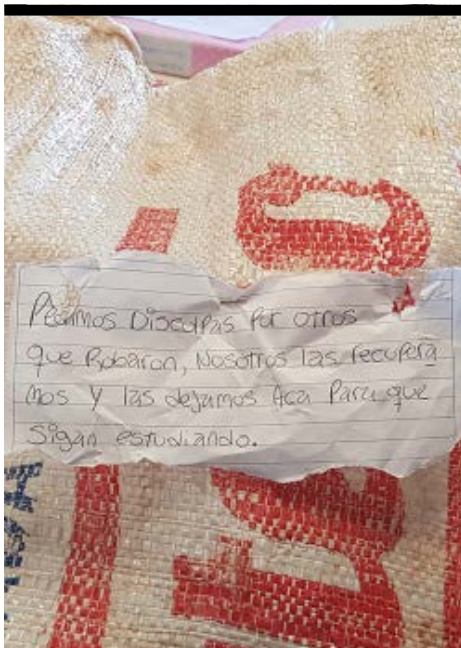 Pedimos Disculpas Por otros
que Robaron, Nosotros las recupera
mos y las dejamos Aca Para que
Sigan estudiando.